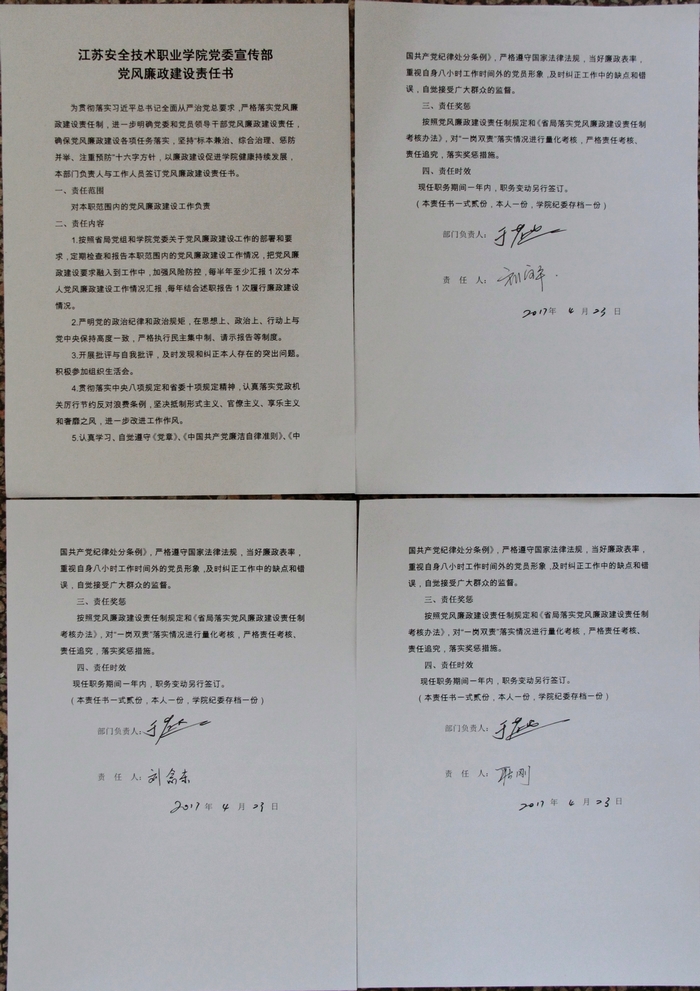 江苏安全技术职业学院党委宣传部
党风廉政建设责任书
为贯彻落实习近平总书记全面从严治党总要求，严格落实党风廉
政建设责任制，进一步明确党委和党员领导干部党风廉政建设责任，
确保党风廉政建设各项任务落实，坚持“标本兼治、综合治理、惩防
并举、注重预防”十六字方针，以廉政建设促进学院健康持续发展，
本部门负责人与工作人员签订党风廉政建设责任书。
一、责任范围
对本职范围内的党风廉政建设工作负责
二、责任内容
1.按照省局党组和学院党委关于党风廉政建设工作的部署和要
求，定期检查和报告本职范围内的党风廉政建设工作情况，把党风廉
政建设要求融入到工作中，加强风险防控，每半年至少汇报1次分本
人党风廉政建设工作情况汇报，每年结合述职报告1次履行廉政建设
情况。
2.严明党的政治纪律和政治规矩，在思想上、政治上、行动上与
党中央保持高度一致，严格执行民主集中制、请示报告等制度。
3.开展批评与自我批评，及时发现和纠正本人存在的突出问题。
积极参加组织生活会。
4.贯彻落实中央八项规定和省委十项规定精神，认真落实党政机
关厉行节约反对浪费条例，坚决抵制形式主义、官僚主义、享乐主义
和奢靡之风，进一步改进工作作风。
5.认真学习、自觉遵守《党章》、《中国共产党廉洁自律准则》、《中
国共产党纪律处分条例》，严格遵守国家法律法规，当好廉政表率，
重视自身八小时工作时间外的党员形象，及时纠正工作中的缺点和错
误，自觉接受广大群众的监督。
三、责任奖惩
按照党风廉政建设责任制规定和《省局落实党风廉政建设责任制
考核办法》，对“一岗双责”落实情况进行量化考核，严格责任考核、
责任追究，落实奖惩措施。
四、责任时效
现任职务期间一年内，职务变动另行签订。
（本责任书一式贰份，本人一份，学院纪委存档一份）
部门负责人：
责 任 人：
2017 年 4 月 23 日
国共产党纪律处分条例》，严格遵守国家法律法规，当好廉政表率，
重视自身八小时工作时间外的党员形象，及时纠正工作中的缺点和错
误，自觉接受广大群众的监督。
三、责任奖惩
按照党风廉政建设责任制规定和《省局落实党风廉政建设责任制
考核办法》，对“一岗双责”落实情况进行量化考核，严格责任考核、
责任追究，落实奖惩措施。
四、责任时效
现任职务期间一年内，职务变动另行签订。
（本责任书一式贰份，本人一份，学院纪委存档一份）
部门负责人：
责 任 人：刘念东
2017 年 4 月 23 日
国共产党纪律处分条例》，严格遵守国家法律法规，当好廉政表率，
重视自身八小时工作时间外的党员形象，及时纠正工作中的缺点和错
误，自觉接受广大群众的监督。
三、责任奖惩
按照党风廉政建设责任制规定和《省局落实党风廉政建设责任制
考核办法》，对“一岗双责”落实情况进行量化考核，严格责任考核、
责任追究，落实奖惩措施。
四、责任时效
现任职务期间一年内，职务变动另行签订。
（本责任书一式贰份，本人一份，学院纪委存档一份）
部门负责人：
责 任 人：
2017 年 4 月 23 日